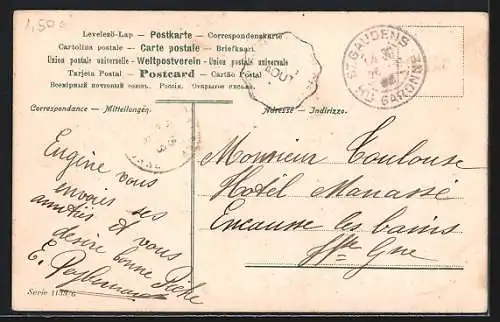 1,50
Levelező-Lap — Postkarte — Correspondenskarte
Cartolina postale — Carte postale — Briefkaart
Union postale universelle - Weltpostverein - Union postale universale
Tarjeta Postal — Postcard — Cartão Postal
Всемірный почтовый союзъ. Россія. Открытое письмо.
AOUT
ST GAUDENS
HTE GARONNE
Correspondance — Mitteilungen.
Adresse — Indirizzo.
Eugène vous
envoies ses
amitiés et vous
désire bonne Pêche
E.
Monsieur Toulouse
Hotel Manassé
Encausse les bains
Hte Gne
Serie